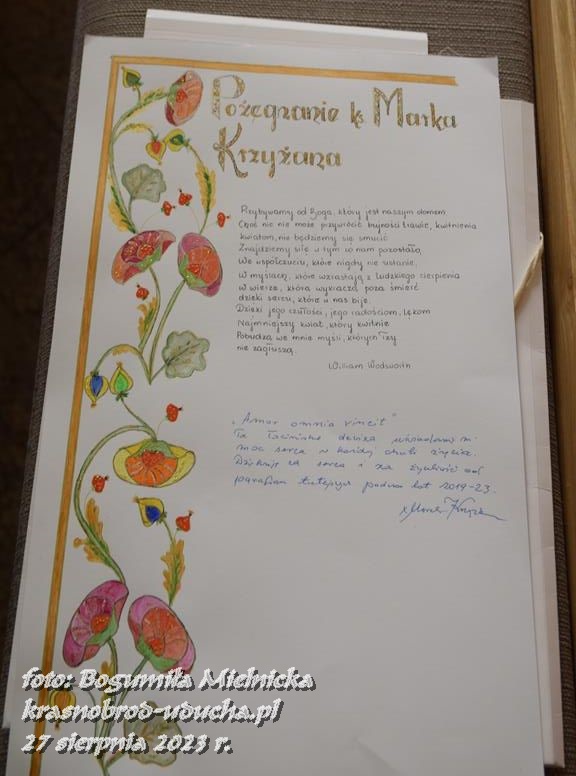 Pożegnanie ks Marka
Krzyżana
Przybywamy od Boga, który jest naszym domem
Choć nic nie może przywrócić bujności trawie, kwitnienia
kwiatom, nie będziemy się smucić
Znajdziemy siłę w tym co nam pozostało,
We współczuciu, które nigdy nie ustanie,
W myślach, które wzrastają z ludzkiego cierpienia
W wierze, która wykracza poza śmierć
dzięki sercu, które w nas bije.
Dzięki jego czułości, jego radościom, lękom
Najmniejszy kwiat, który kwitnie
Pobudza we mnie myśli, których łzy
nie zagłuszą.
William Wodsworth
"Amor omnia vincit"
Ta łacińska dewiza
moc serca w każdej chwili życia.
Dziękuję za serca i za życzliwość od
parafian tutejszych podczas lat 2019-23.
x Marek
foto: Bogumiła Mielnicka
krasnobrod-uducha.pl
27 sierpnia 2023 r.